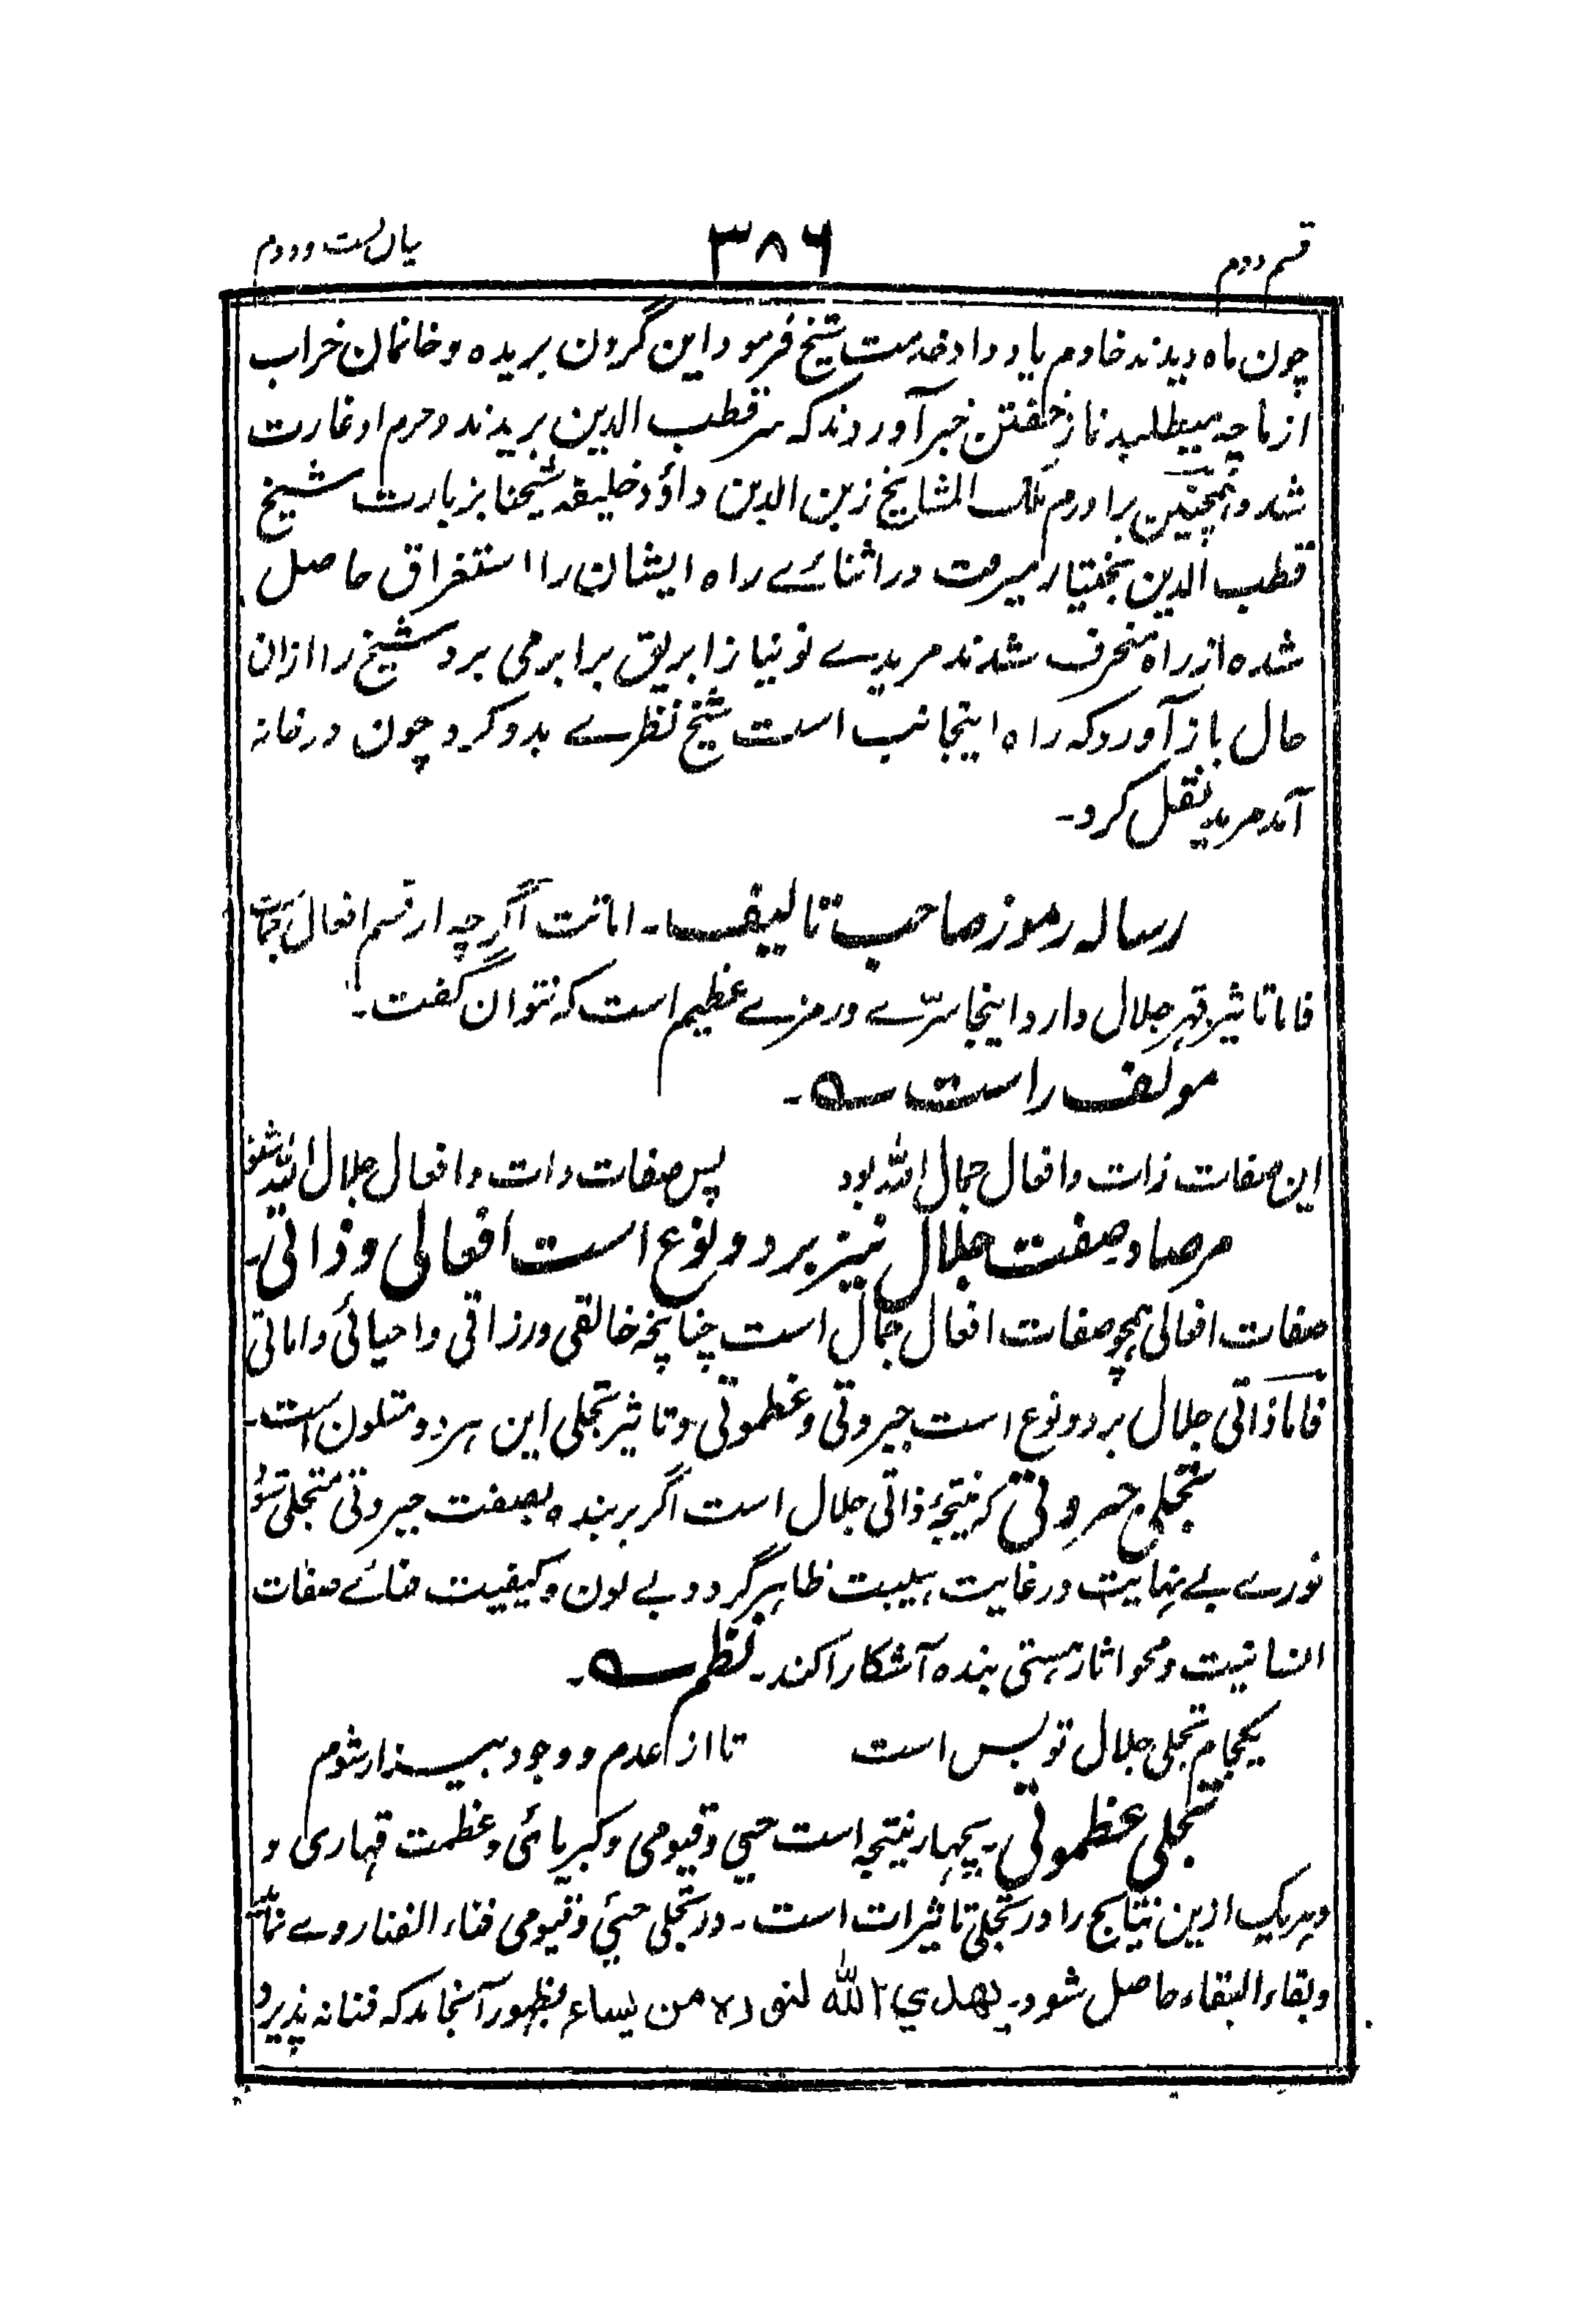 قسم دوم ۳۸۶ بیان بست و دوم
چون ماه دیدند خادم یاد داد خدمت شیخ فرمود این گردن بریده و خانمان خراب
از ما چه میطلبد نماز خفتن خبر آوردند که سر قطب الدین بریدند و حرم او غارت
شد و همچنین برادرم ملک المشایخ زین الدین داؤد خلیفه شیخنا بزیارت شیخ
قطب الدین بختیار میرفت در اثنائے راه ایشان را استغراق حاصل
شده از راه منحرف شدند مریدے نو نیاز ابریق برابر می برد شیخ را ازان
حال باز آورد که راه اینجانب است شیخ نظرے بدو کرد چون در خانه
آمد مرید نقل کرد۔
رساله رموز صاحب تالیف۔ اماتت اگرچه از قسم افعال جمالست
فاما تاثیر قهر جلال دارد اینجا سرّے و رمزے عظیم است که نتوان گفت۔
مولف راست ؎۔
این صفات ذات و افعال جمال الله بود پس صفات ذات و افعال جلال الله شنو
مرصاد صفت جلال نیز بر دو نوع است افعالی و ذاتی۔
صفات افعالی همچو صفات افعال جمال است چنانچه خالقی و رزاقی و احیائی و اماتی
فاما ذاتی جلال بر دو نوع است جبروتی و عظموتی و تاثیر تجلی این هر دو متلون است۔
تجلی جبروتی که نتیجهٔ ذاتی جلال است اگر بر بنده بصفت جبروتی متجلی شود
نورے بے نهایت در غایت هیبت ظاهر گردد بے لون و کیفیت فنائے صفات
انسانیت و محو اثار هستی بنده آشکارا کند۔ نظم ؎۔
یکجام تجلی جلال تو بس است تا از عدم و وجود بیزار شوم
تجلی عظموتی۔ بچهار نتیجه است حیی و قیومی و کبریائی و عظمت قهاری و
و هر یک ازین نتایج را در تجلی تاثیرات است۔ در تجلی حیئ و قیومی فناء الفنا روے نماید
و بقاء البقاء حاصل شود۔ یهدي الله لنوره من یساء بظهور آنجا مد که فنا نه پذیرد و